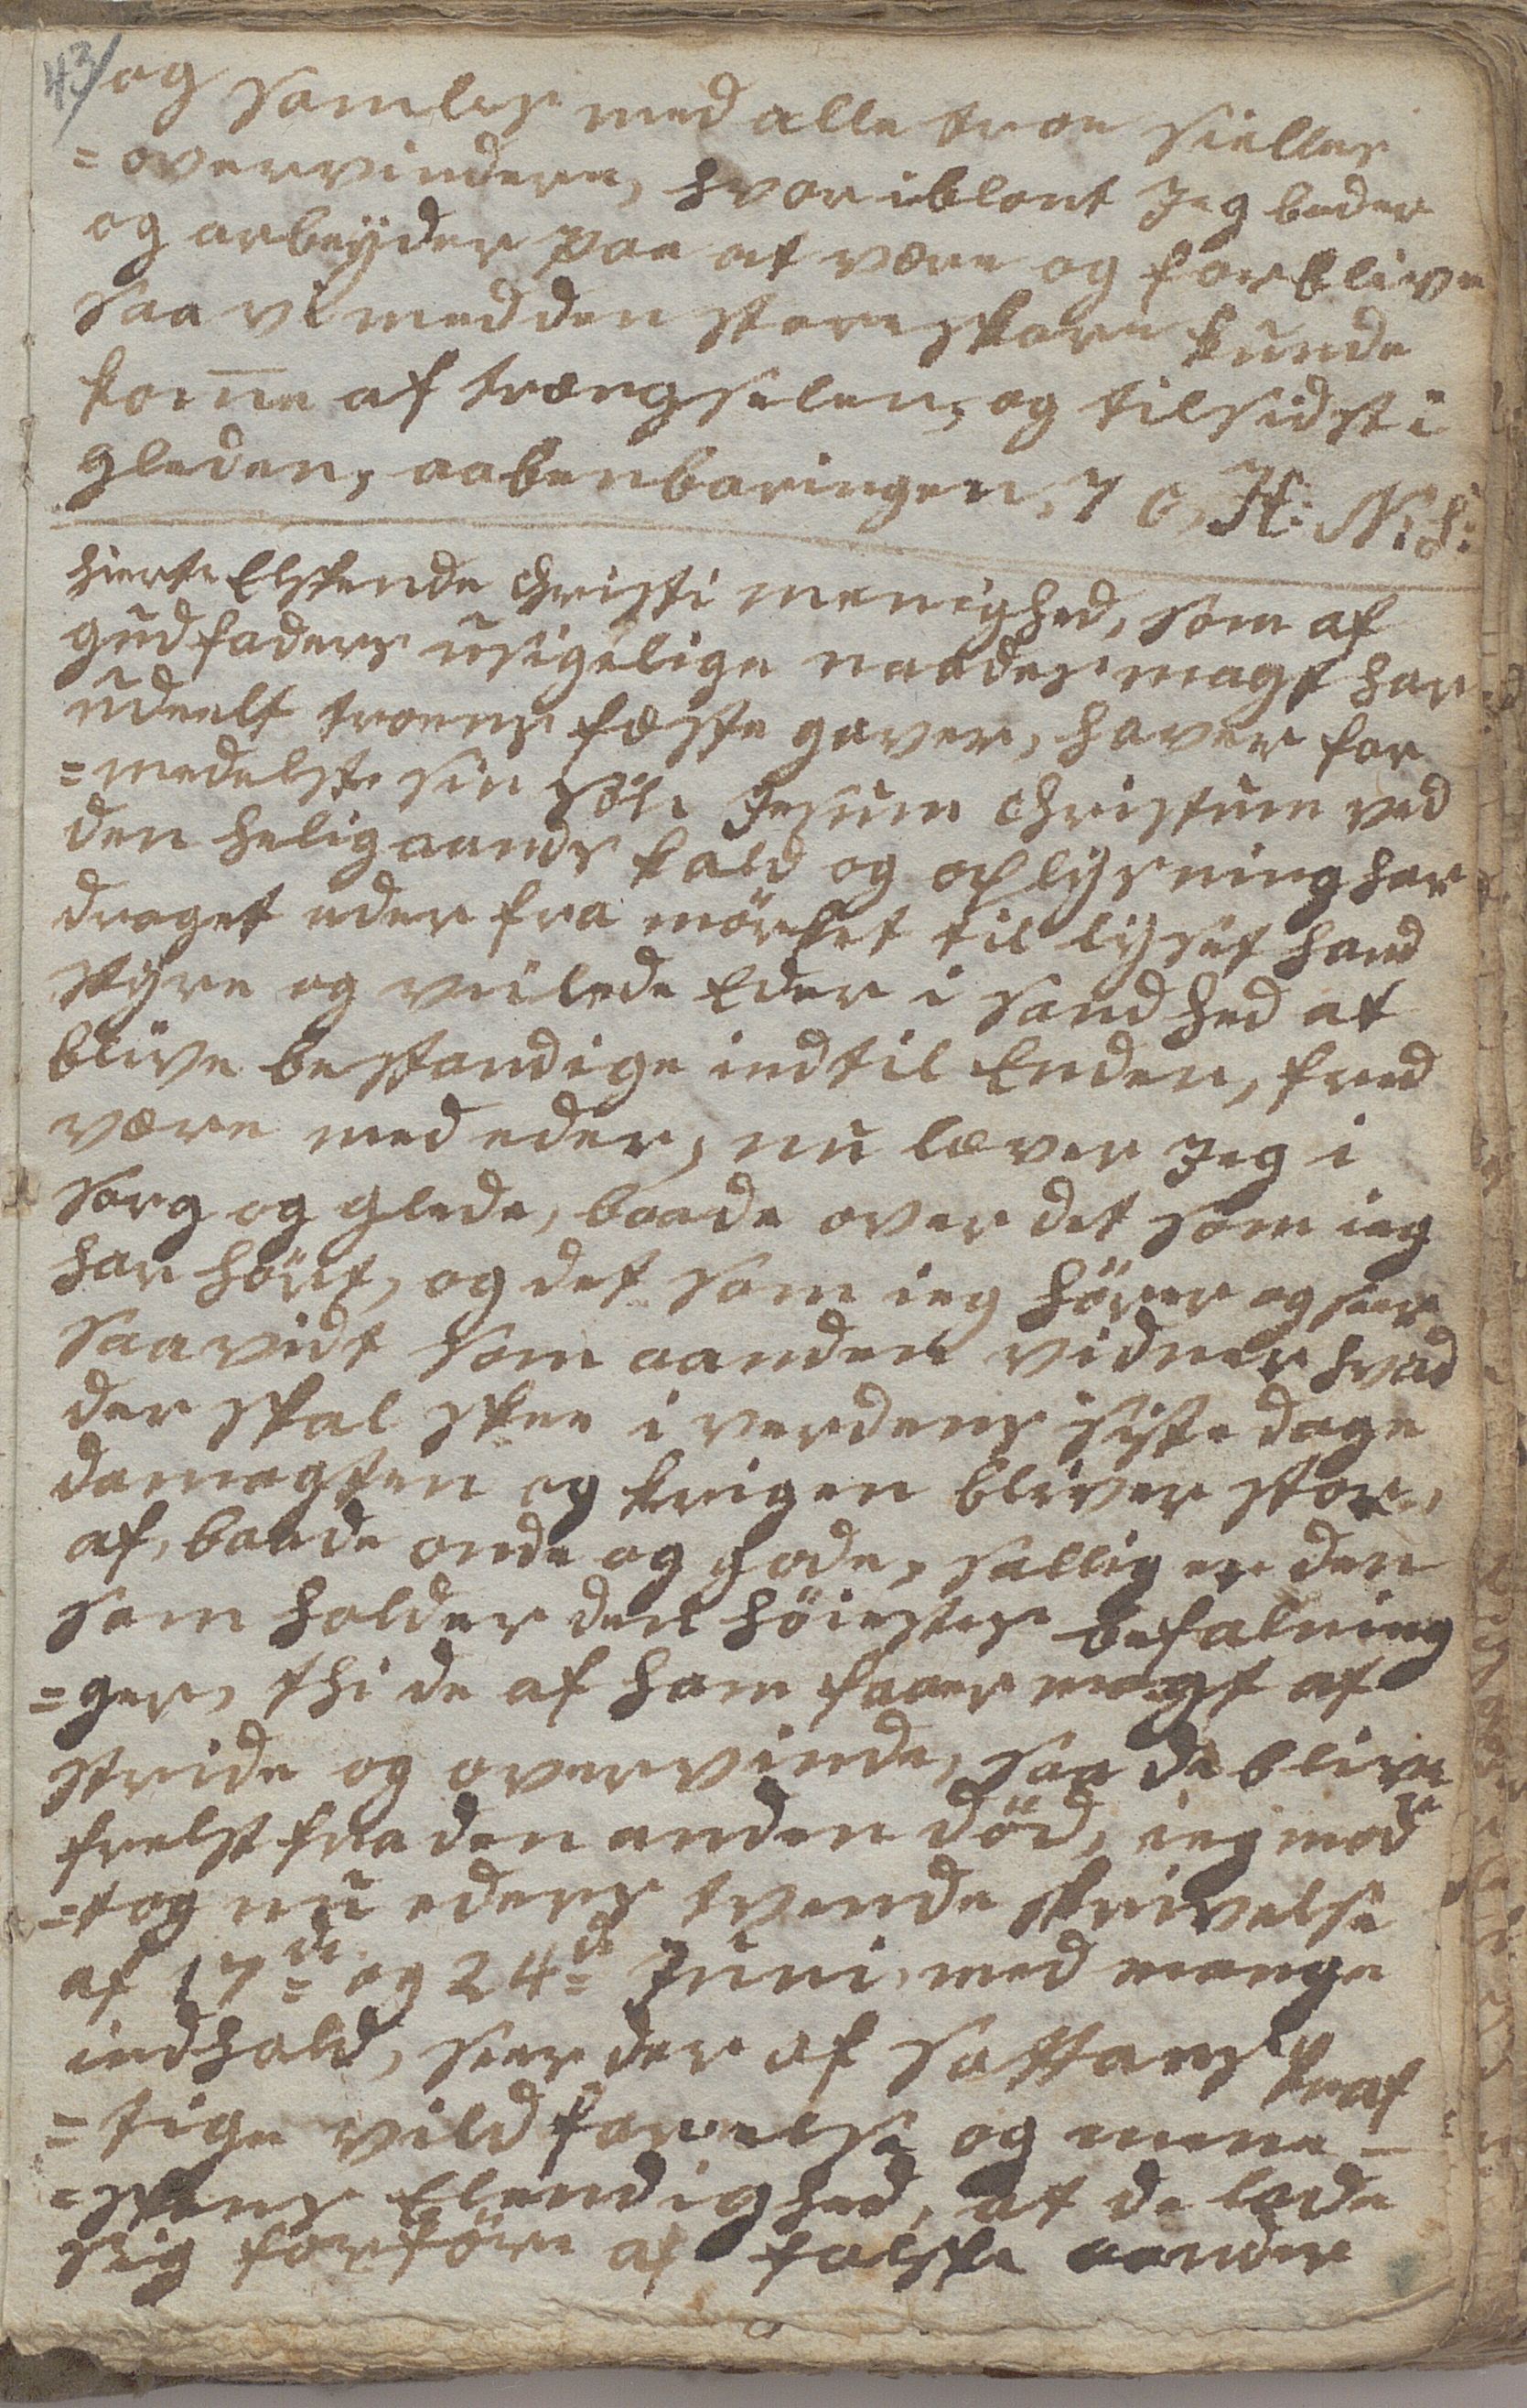 43/ og samles med alle troe siælles
=overvindere, hvor iblant Jeg beder
og arbeyder paa at være og forblive
saa vi med den store skare kunde
kom̅e af trængselen, og tilsidst i
gleden, aabenbaringen, 7 C, H: N: H:
hierte Elskende Christi menighed, som af
gud faders usigelige naades magt har
udeelt troens feste gaver, haver for
=medelst sin søn Jesum Christum ved
den helig aands kald og oplysning har
draget eder fra mörket til lyset hand
styre og veilede Eder i sandhed at
blive bestandige indtil Enden, fred
være med eder, nu lever Jeg i
sorg og glede, baade over det som ieg
har hört, og det som ieg hörer og seer
saavidt som aanden vidner hvad
der skal skee i verdens siste dage
da magten og krigen bliver stor,
af, baade onde og gode, sallig er den
som holder den höiestes befalning
=ger, thi de af ham faaer magt at
stride og overvinde, saa de blive
frelst fra den anden död, ieg mod
=tog nu eders tvende skrivelse
af 17de og 24de Juni, med mange
indhold, seer der af sattans kraf
=tige vildfarelse og menne-
=skens Elendighed, at de lade
sig forföre af falske aander